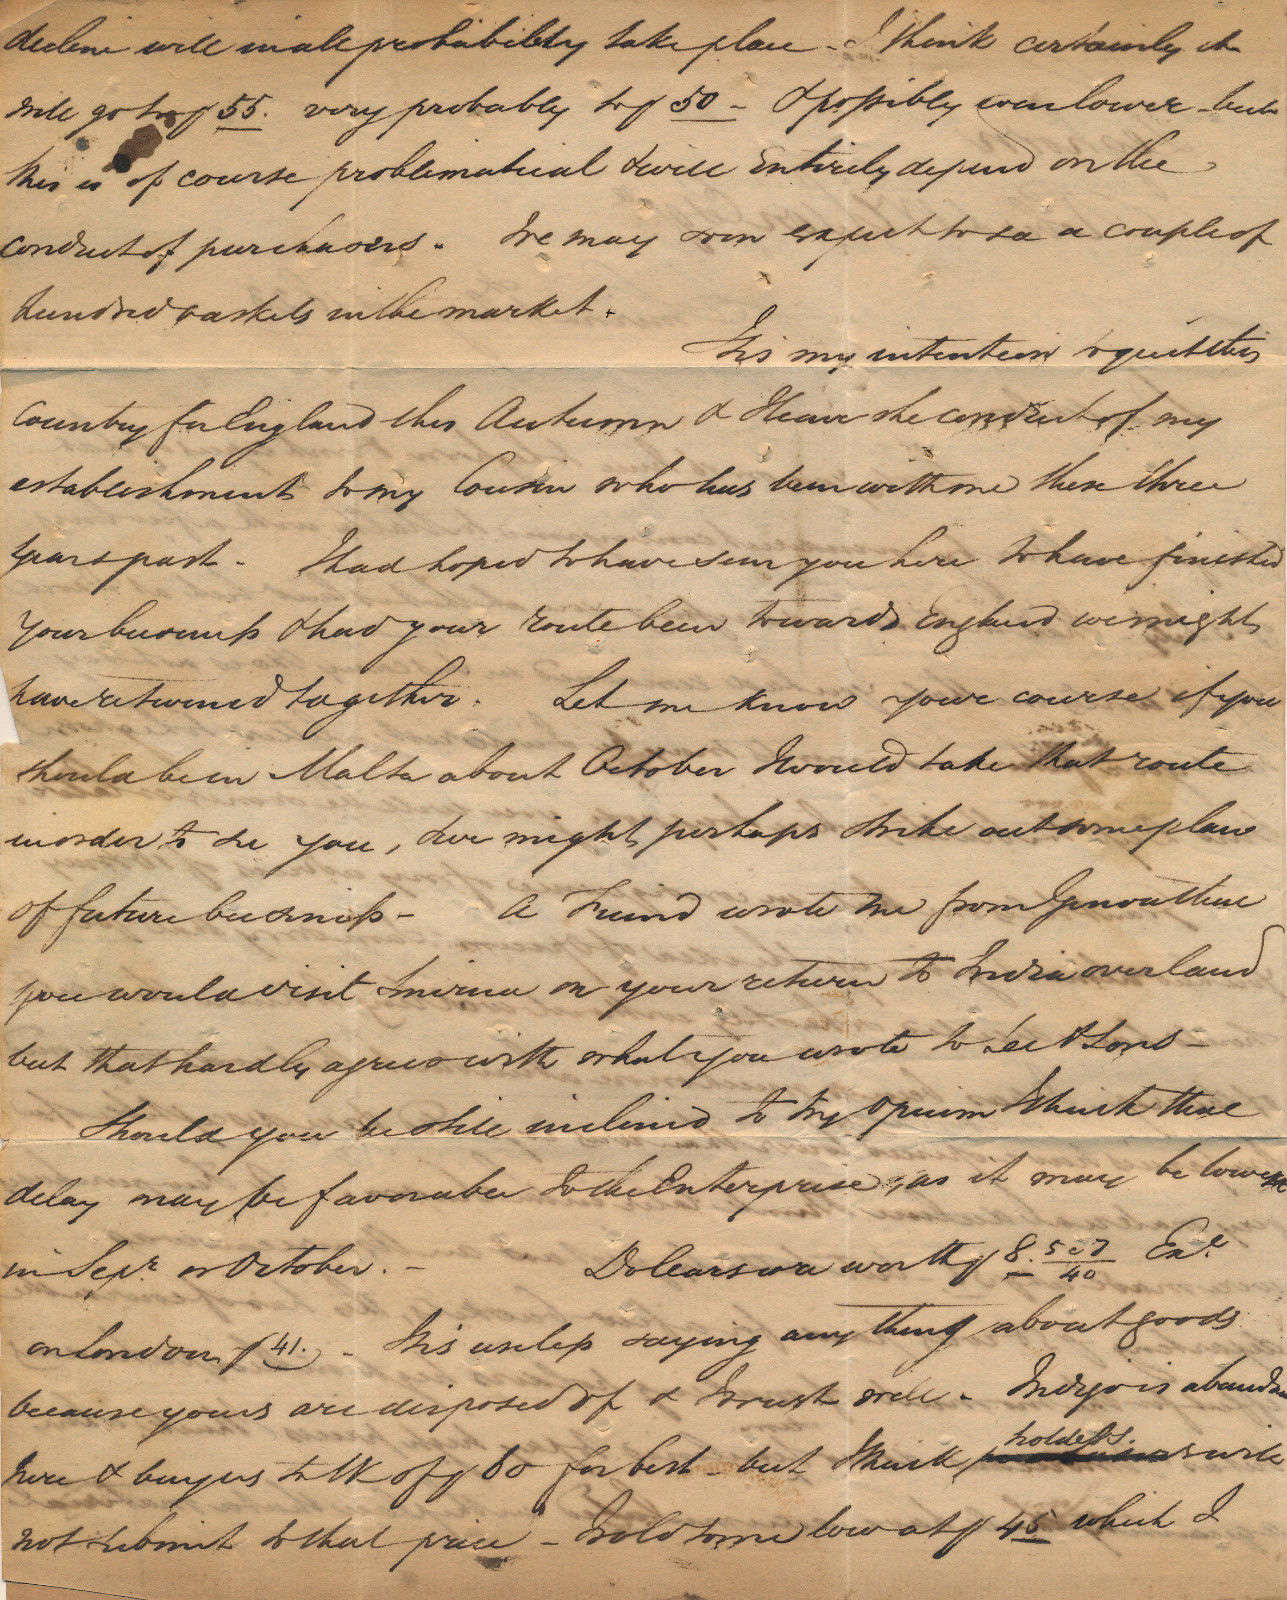 decline will in all probability take place - I think certainly it
will go to p 55. very probably to p 50 - & possibly even lower - but
this is of course problematical & will entirely depend on the
conduct of purchasers. We may soon expect to see a couple of
hundred baskets in the market.
It is my intention to quit this
Country for England this Autumn & I leave the conduct of my
establishment to my Cousin who has been with me these three
years past. I had hoped to have seen you here to have finished
your business & had your route been towards England we might
have returned together. Let me know your course if you
should be in Malta about October I would take that route
in order to see you, & we might perhaps strike out some plan
of future business - A Friend wrote me from Genoa that
you would visit Smirna on your return to India overland
but that hardly agrees with what you wrote to Lee & Sons -
Should you be still inclined to try opium I think that
delay may be favorable to the Enterprise, as it may be lower
in Sepr. or October. - Dollars are worth p 8. 5 a 7/40 Exe
on London p 41. - It is useless saying any thing about goods
because yours are disposed of & I trust well - Indigo is abundt
here & buyers talk of p 80 for best - but I think holders will
not submit to that price - I sold some low at p 45 which I